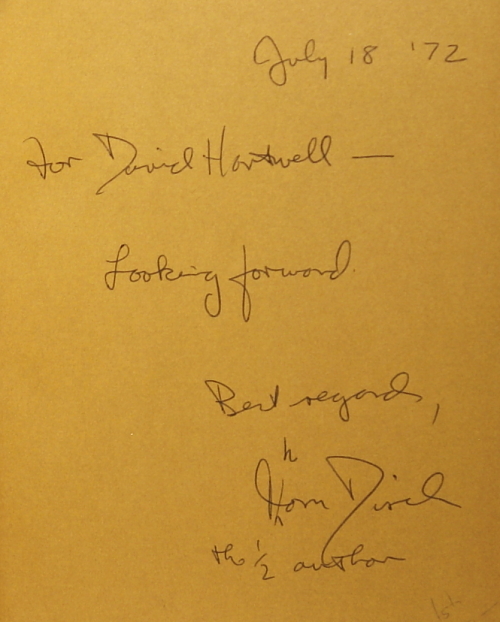 July 18 '72
For David Hartwell —
Looking forward.
Best regards,
Thom Disch
the 1/2 author